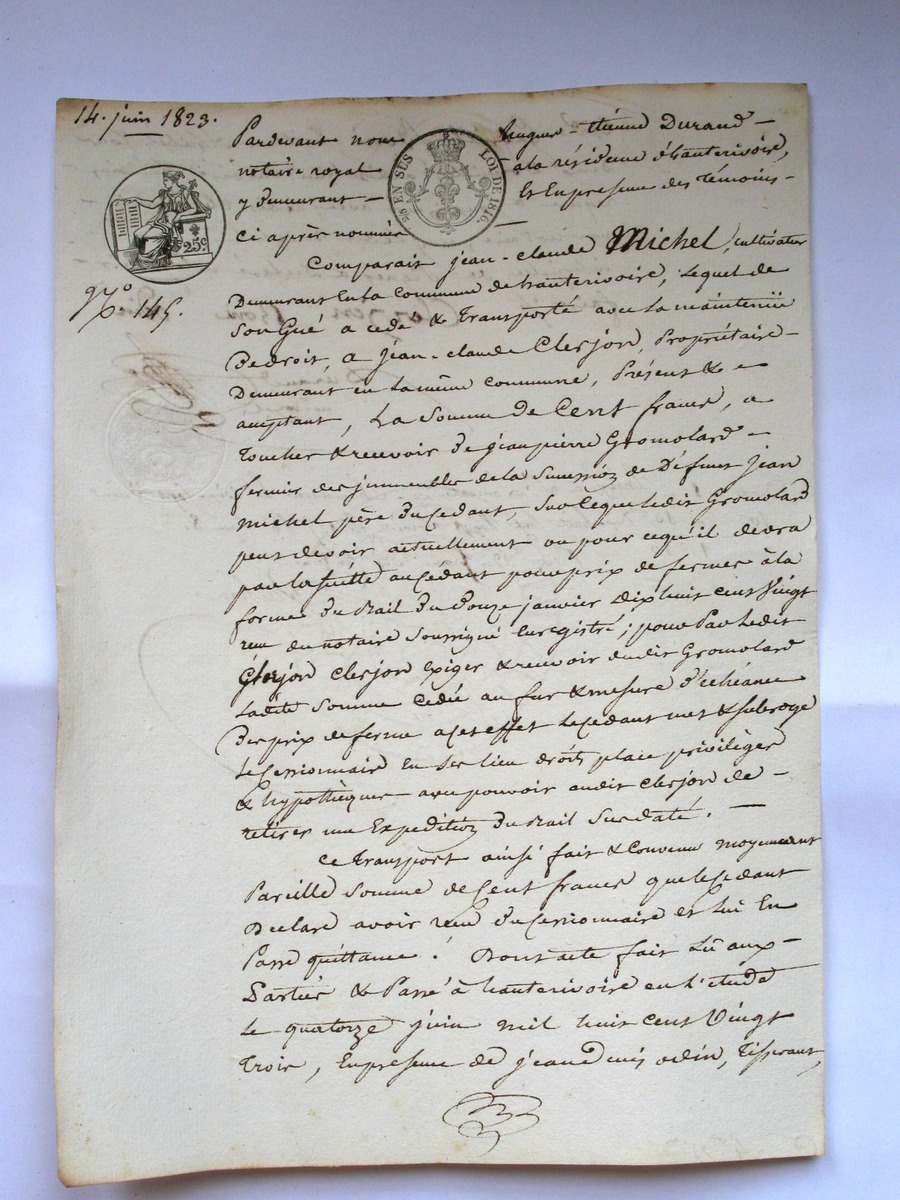 14. juin 1823.
Pardevant nous hugues-étienne Durand
notaire royal ala résidence d'hauterivoire,
y demeurant Et En presence des Témoins
Ci après nommés
EN SUS LOI DE 1816.
25c
N.° 145.
Comparait jean-claude Michel, cultivateur
Demeurant En La Commune de hauterivoire, Lequel de
Son Gré a cédé & Transporté avec La maintenüe
De droit, a jean-claude Clerjon, Propriétaire
Demeurant en La même commune, Présent & -
acceptant, La Somme de Cent francs, a
Toucher & recevoir de jean pierre Gromolard
fermier des immeubles de la Succession de Défunt jean
michel père du Cedant, Sur Ceque Ledit Gromolard
peut devoir actuellement ou pour cequ'il devra
par la suitte au Cédant pour prix de fermes à la
forme du Bail du Douze janvier Dix huit cent Vingt
reçu du notaire Soussigné Enregistré; pour Par Ledit
Clerjon clerjon Exiger & recevoir dudit Gromolard
Ladite Somme Cédée au fur & mesure D'échéance
Des prix de ferme a Cet effet Le Cedant met & subroge
Le Cessionnaire En Ses lieu droits place privilèges
& hypothèques avec pouvoir audit clerjon de -
retirer une Expedition du Bail Susdaté.
Ce Transport ainsi fait & Convenu moyennant
Pareille Somme de Cent francs que Le Cedant
Declare avoir reçu du Cessionnaire et Lui En
Passe quittance. Dont acte fait Lû aux
Parties & Passé à hauterivoire en L'etude
Le quatorze juin mil huit cent Vingt
Trois, En presence de jean Denis odin, Tisserant,